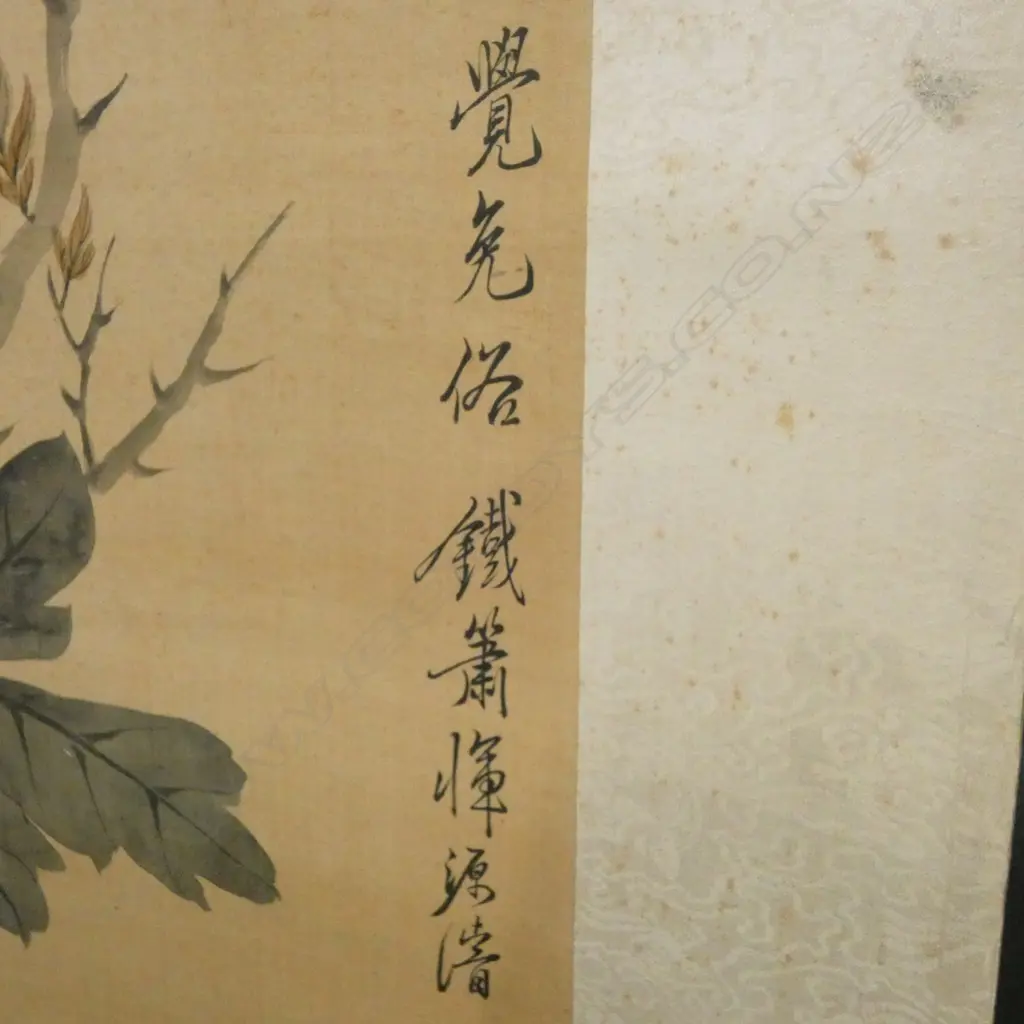 覺免俗 鐵簫惲源濬